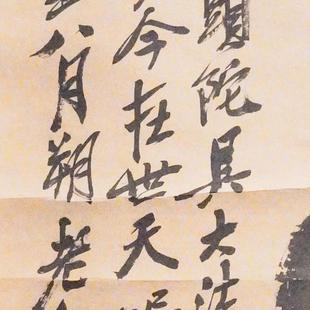 頭陀具大法
今在世天
八月朔老